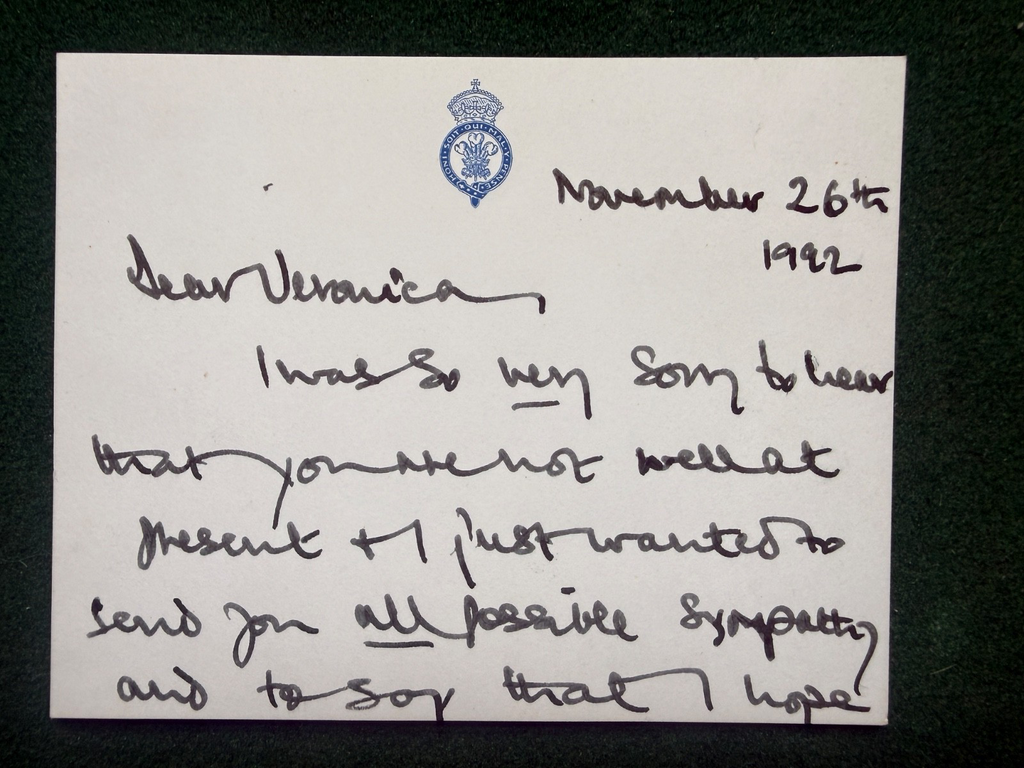 HONI · SOIT · QUI · MAL · Y · PENSE
November 26th
1992
Dear Veronica,
I was so very sorry to hear
that you are not well at
present + I just wanted to
send you all possible sympathy
and to say that I hope